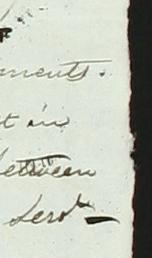 ments.
t in
between
Serv^t